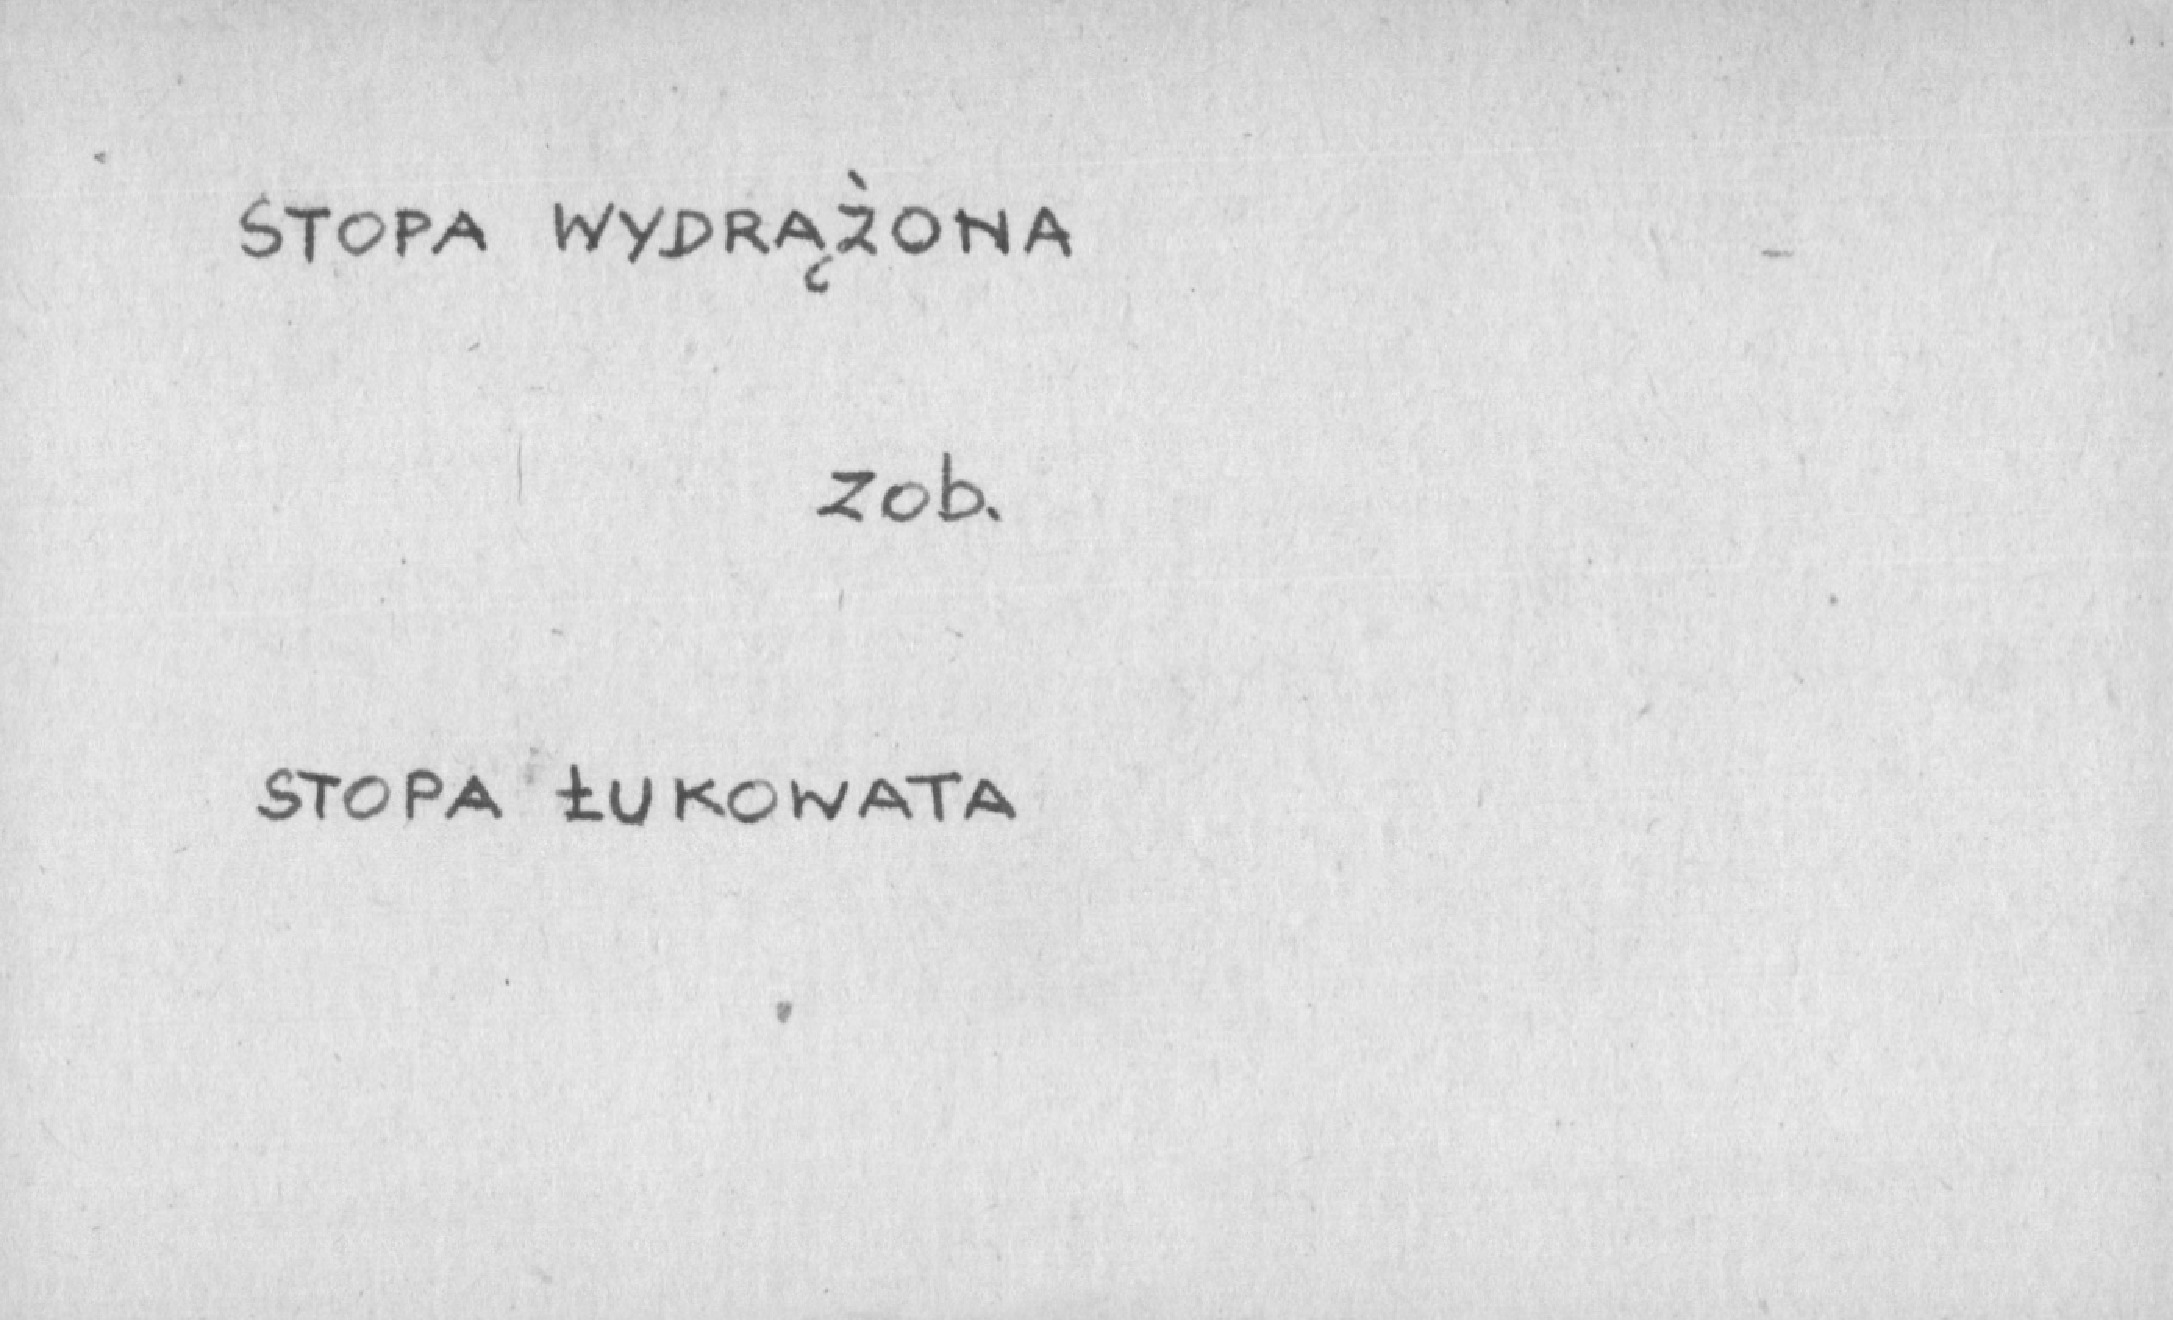 STOPA WYDRĄŻONA
zob.
STOPA ŁUKOWATA